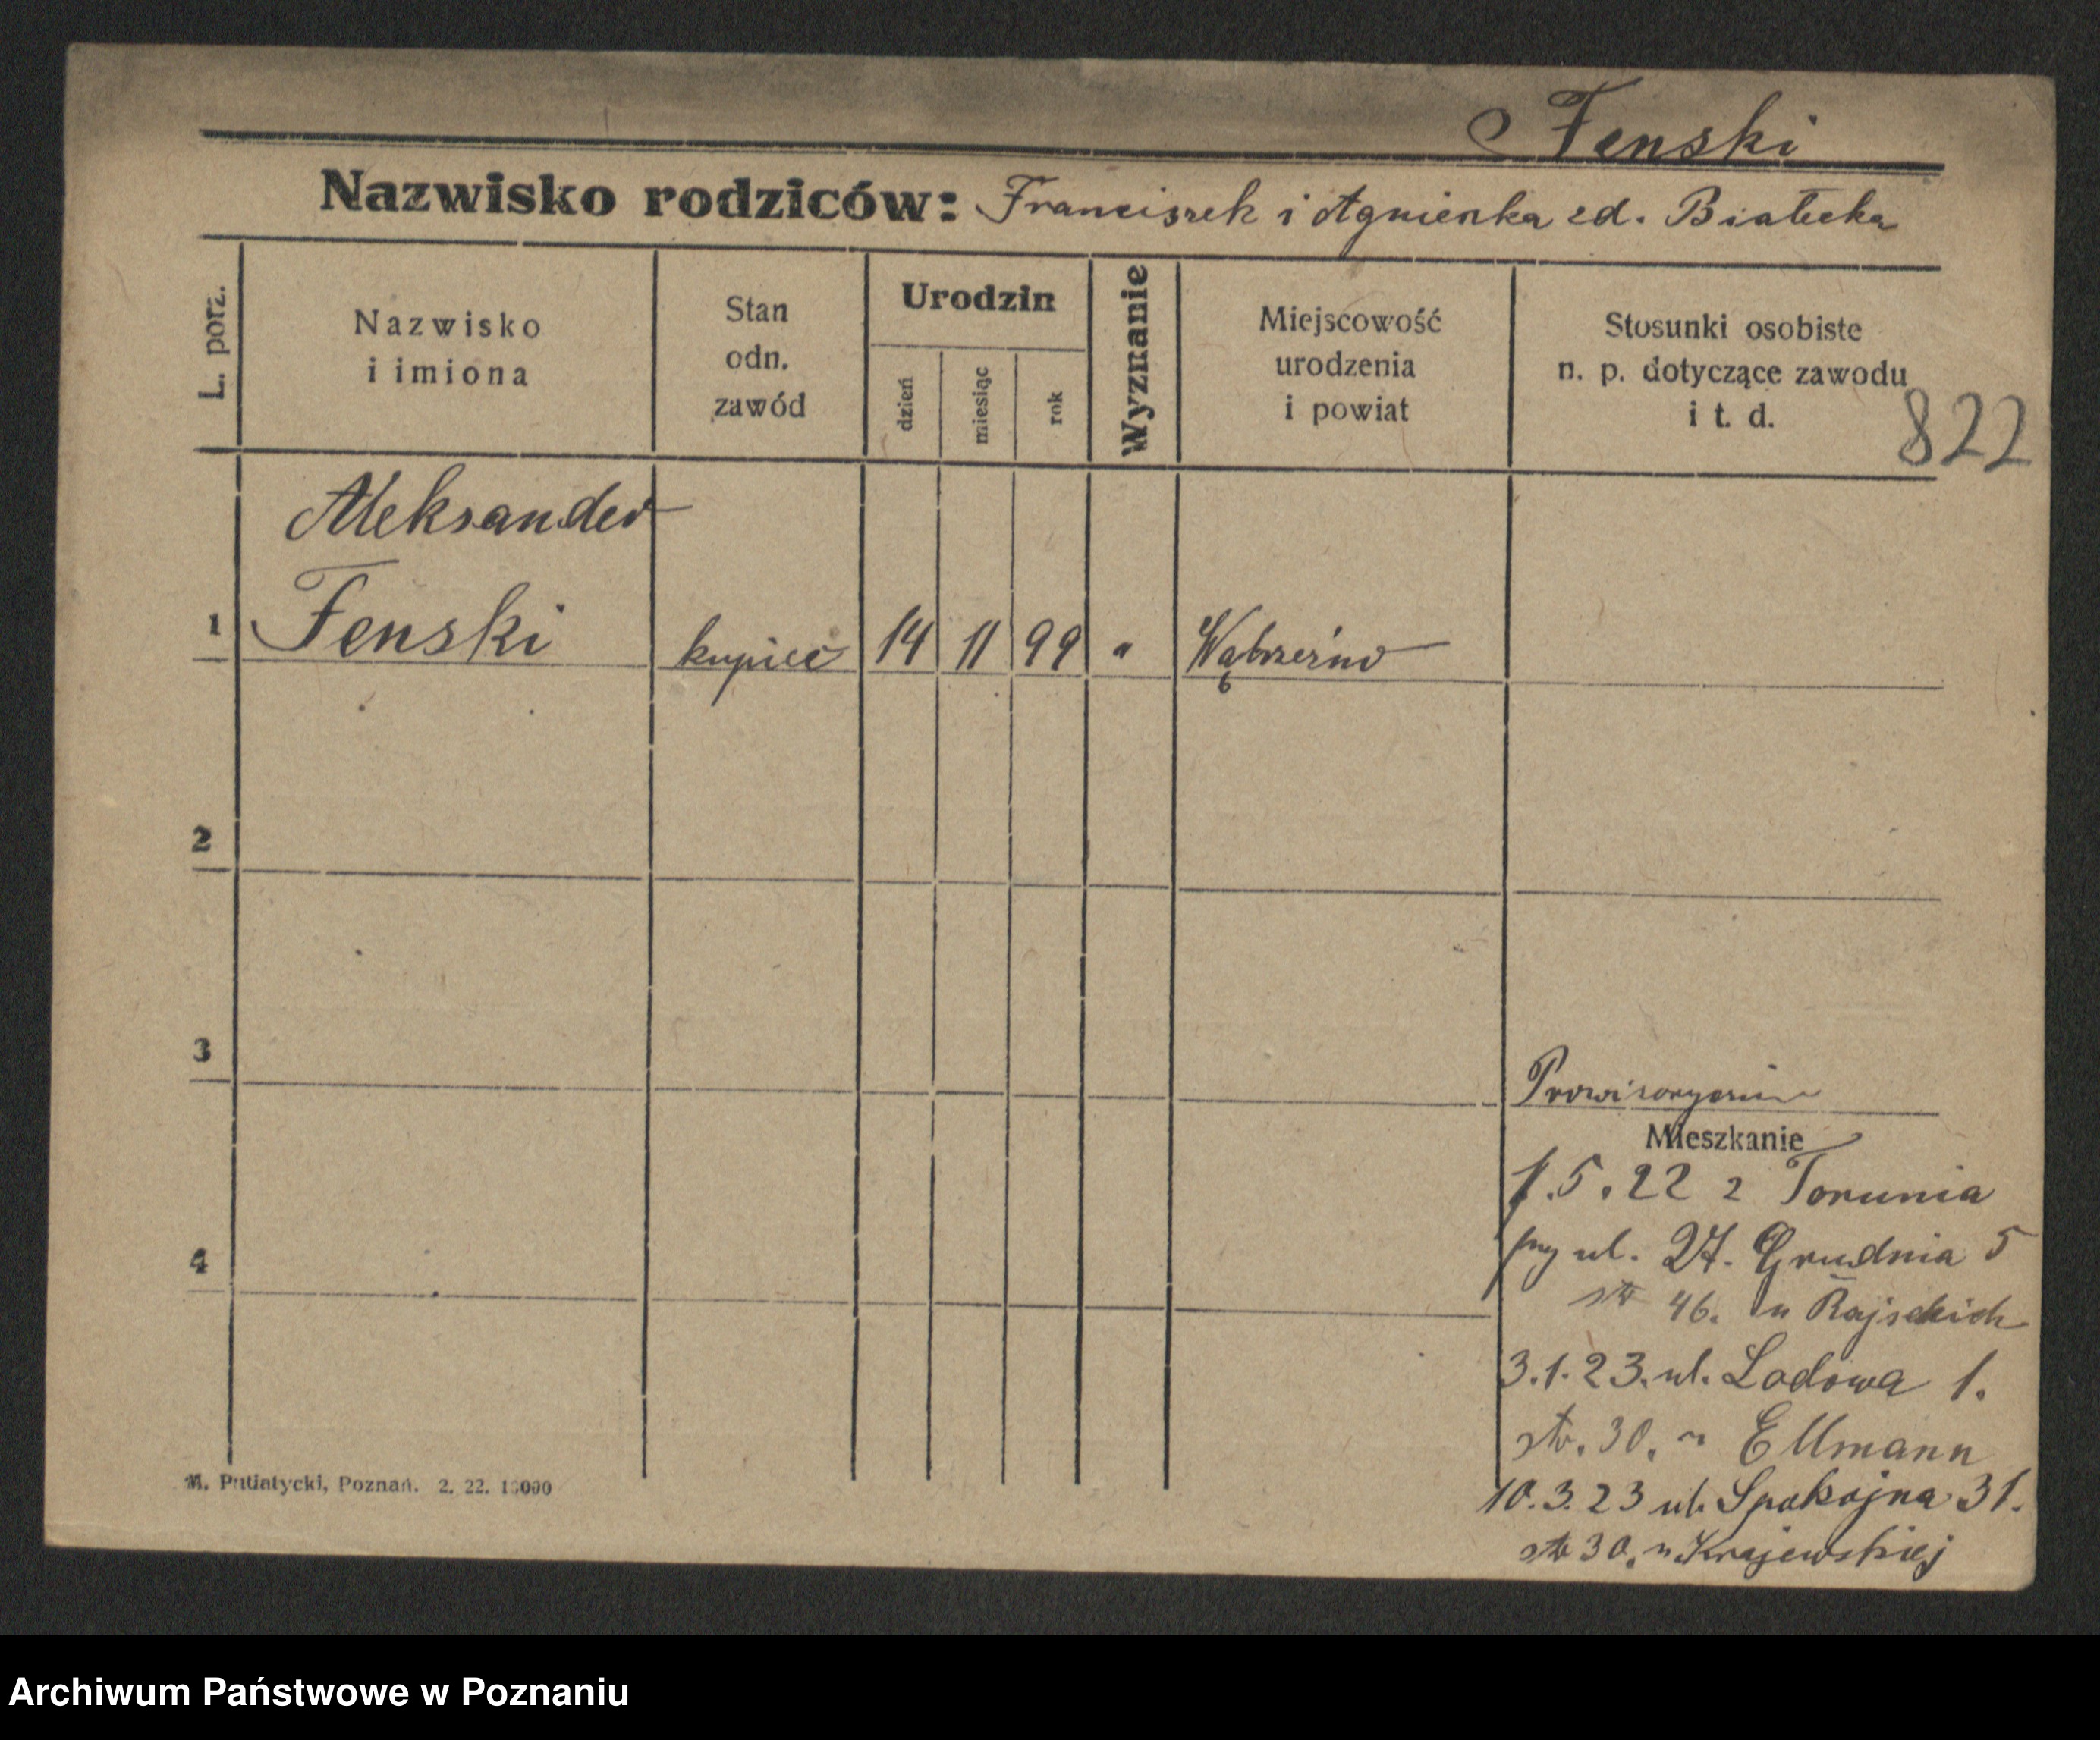 Fenski
Nazwisko rodziców: Franciszek i Agnieszka zd. Białecka
L. porz.
Nazwisko
i imiona
Stan
odn.
zawód
Urodzin
dzień
miesiąc
rok
Wyznanie
Miejscowość
urodzenia
i powiat
Stosunki osobiste
n. p. dotyczące zawodu
i t. d.
822
Aleksander
1 Fenski kupiec 14 11 99 " Wąbrzeźno
2
3
4
Mieszkanie
1.5.22 z Torunia
przy ul. 27. Grudnia 5
46. u Rajskich
3.1.23. ul. Lodowa 1.
str. 30. u Ellmann
10.3.23 ul. Spokojna 31.
str 30. u Krajewskiej
M. Putiatycki, Poznań. 2. 22.
Archiwum Państwowe w Poznaniu